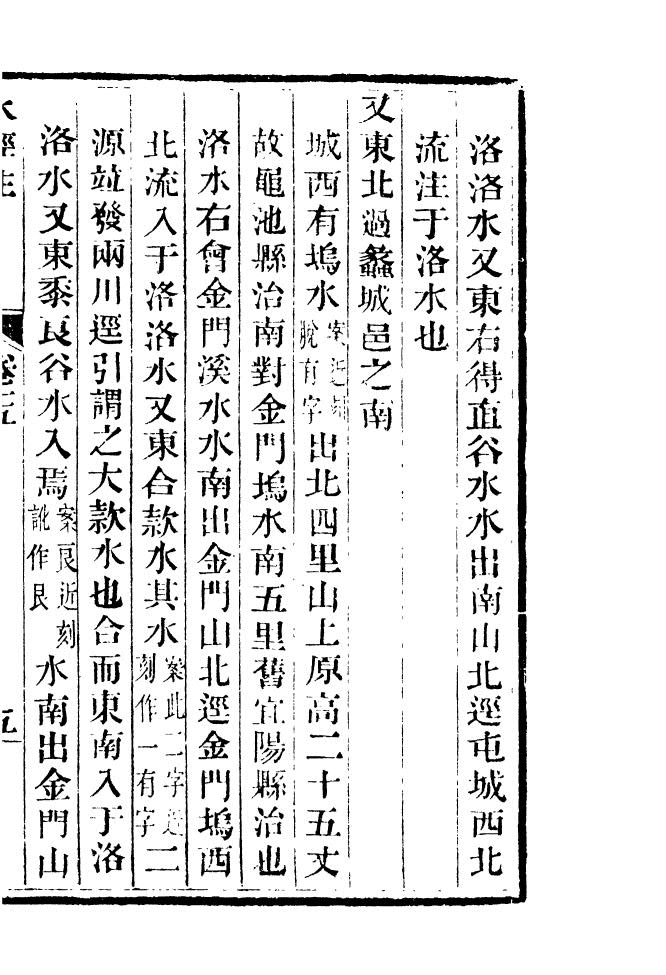 洛洛水又東右得直谷水水出南山北逕屯城西北
流注于洛水也
又東北過蠡城邑之南
城西有塢水案近刻脫有字出北四里山上原高二十五丈
故黽池縣治南對金門塢水南五里舊宜陽縣治也
洛水右會金門溪水水南出金門山北逕金門塢西
北流入于洛洛水又東合款水其水案此二字近刻作一有字二
源並發兩川逕引謂之大款水也合而東南入于洛
洛水又東黍良谷水入焉案良近刻訛作艮水南出金門山
水經注
卷十五
五